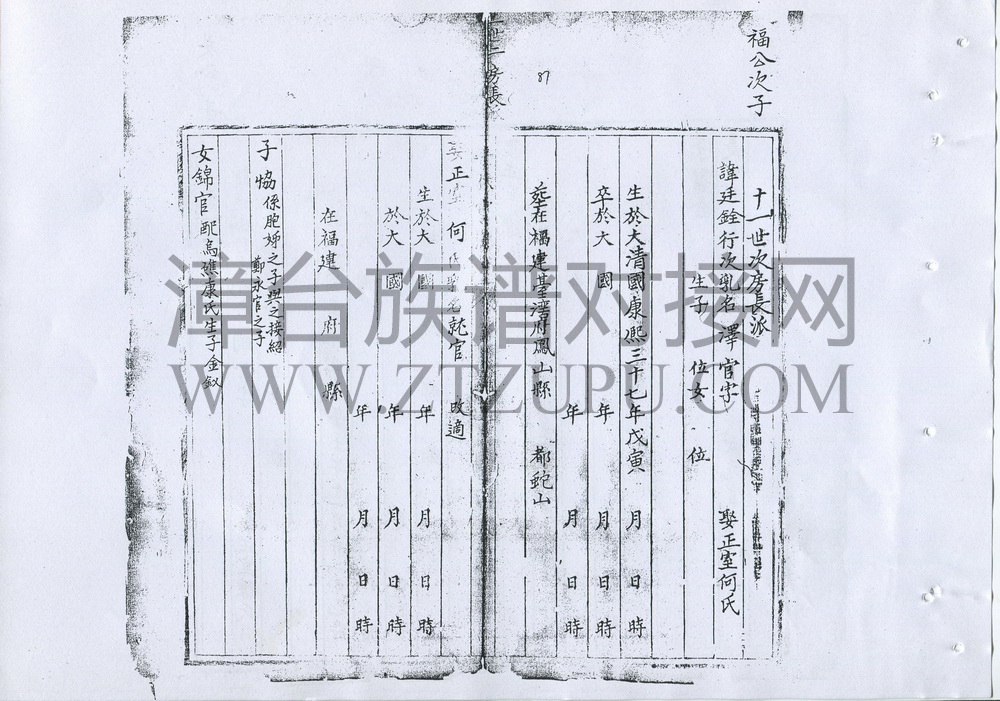 福公次子
十一世次房長派
諱廷銓行次乳名澤官字 娶正室何氏
生子 位女 位
生於大清國康熙三十七年戊寅 月 日 時
卒於大 國 年 月 日 時
年 月 日 時
葬在福建臺灣府鳳山縣 都蛇山
87
房長
娶正室何氏乳名 官 改適
生於大 國 年 月 日 時
於大 國 年 月 日 時
年 月 日 時
在福建 府 縣
子 恊係胞姊之子與之接紹
鄭永官之子
女錦官配烏礁康氏生子金釵
漳台族谱对接网
WWW.ZTZUPU.COM